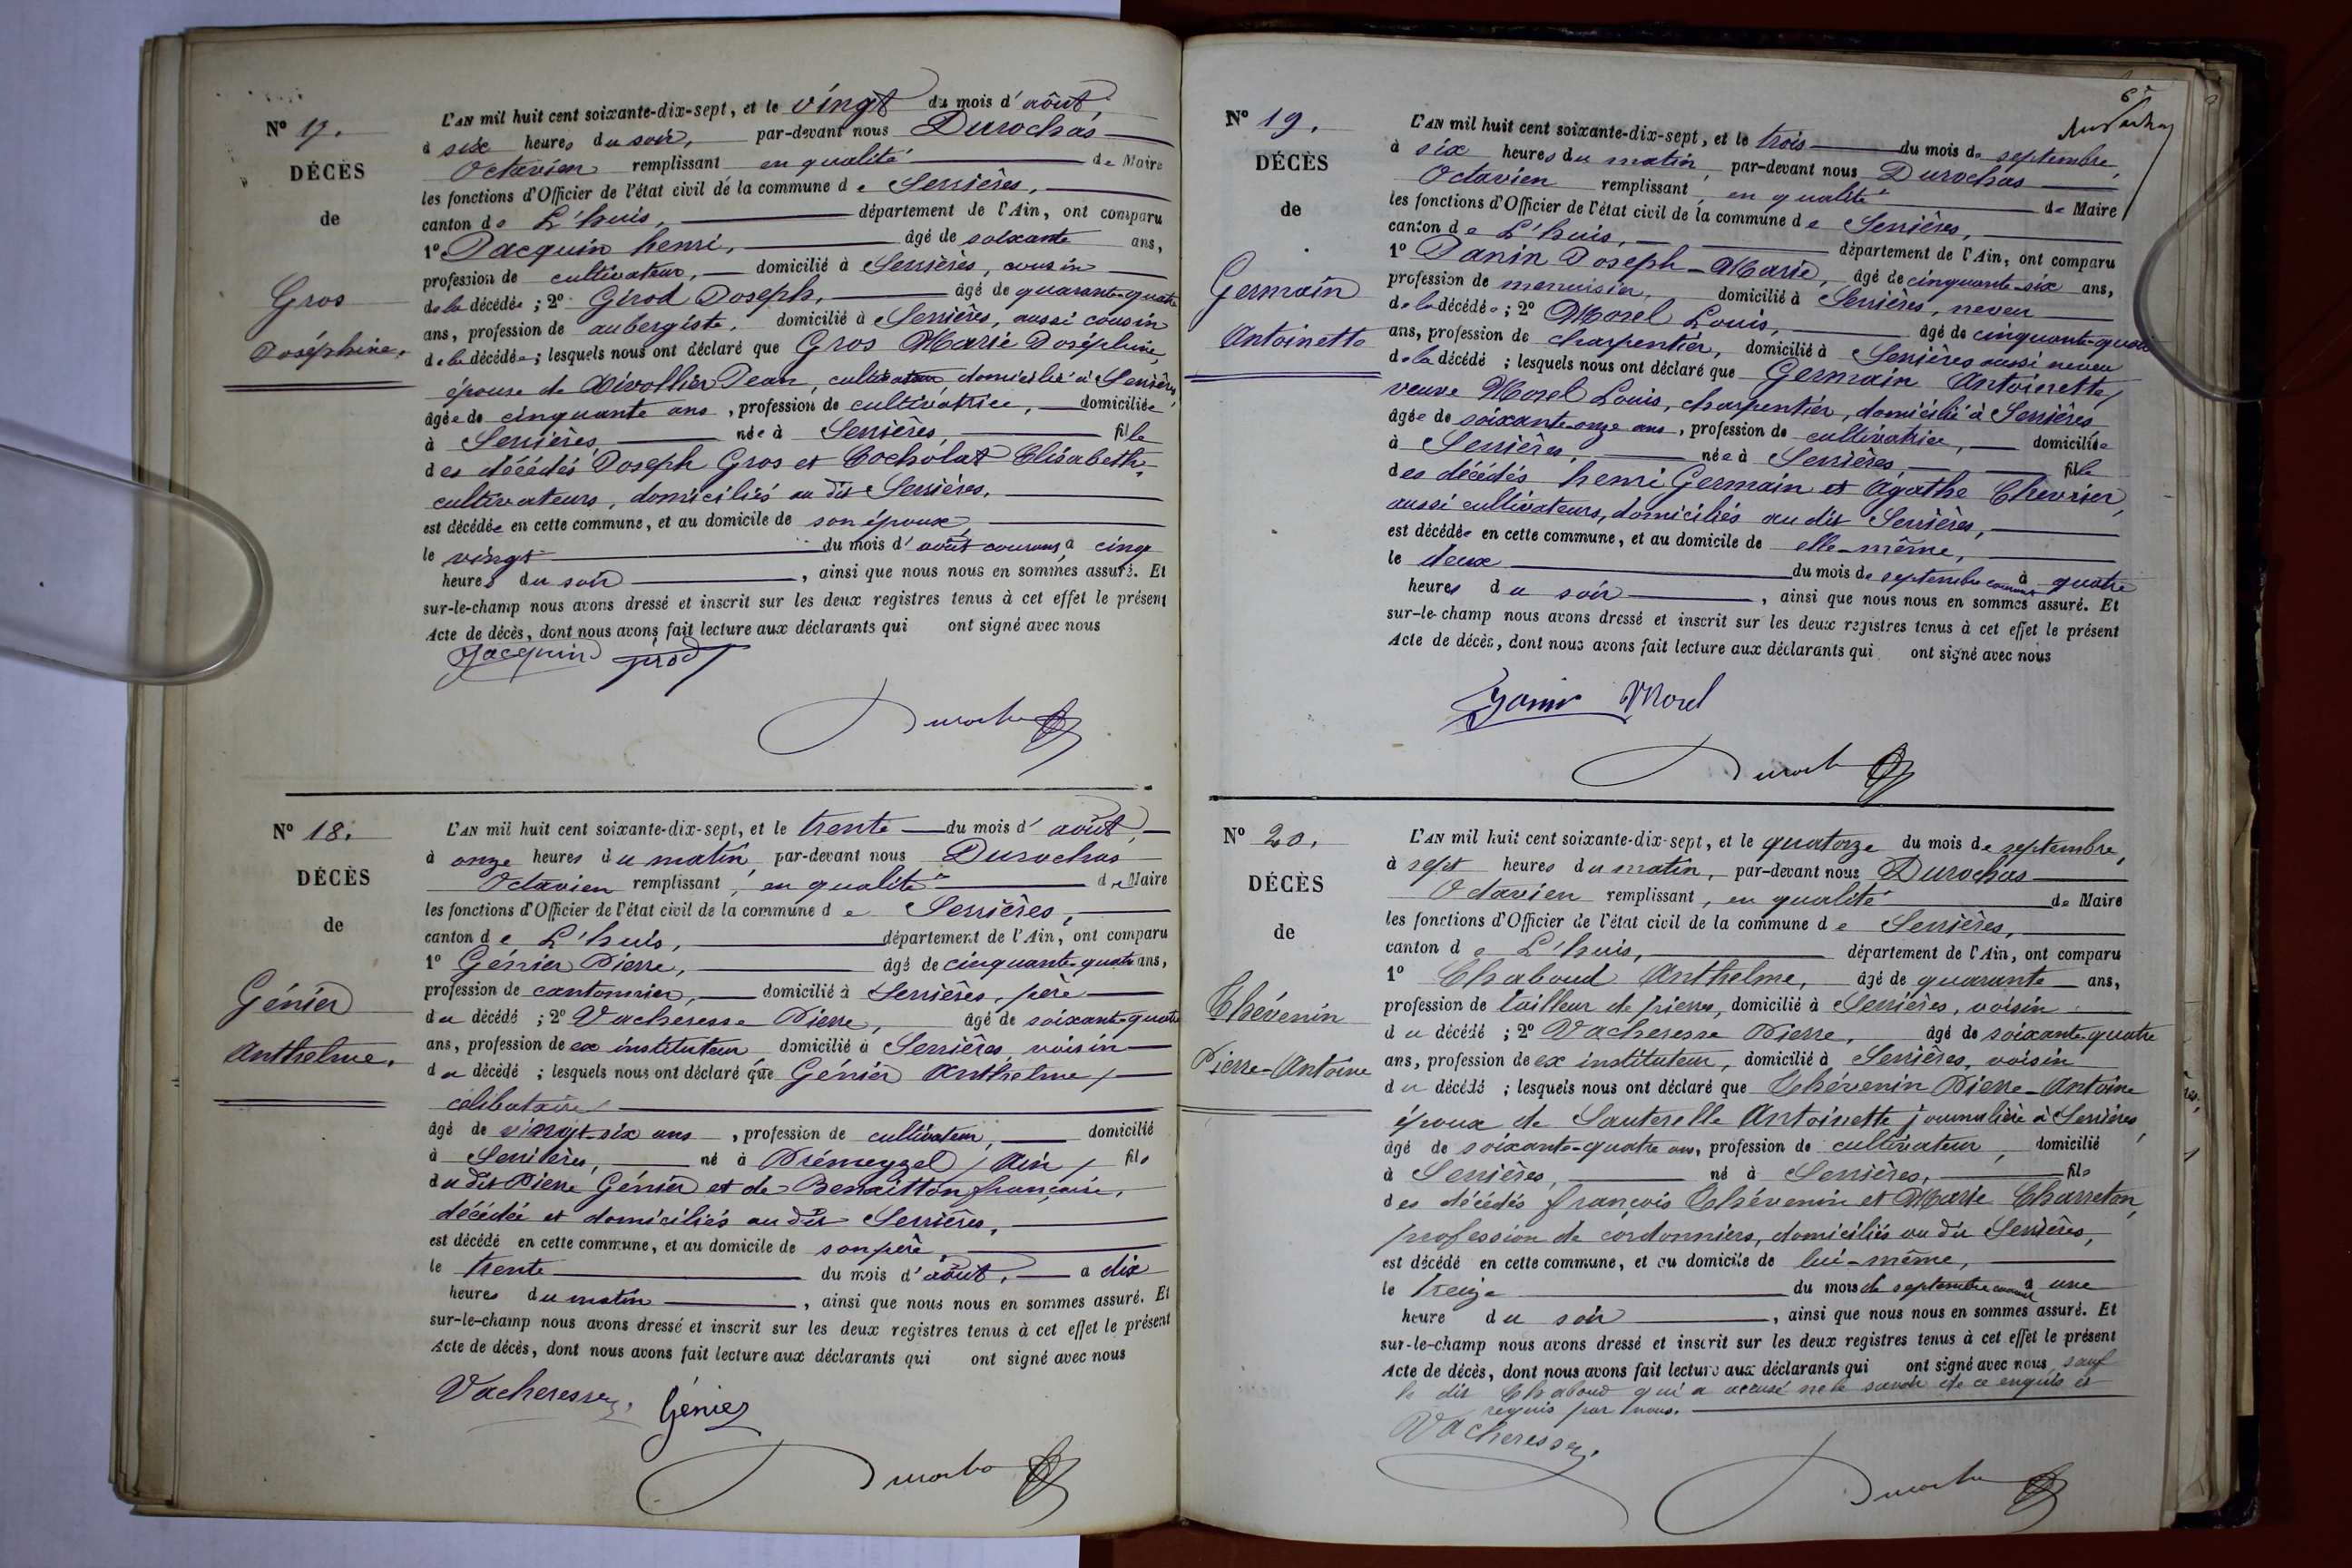 N° 17.
DÉCÈS
de
Gros
Joséphine.
L'AN mil huit cent soixante-dix-sept, et le vingt du mois d'aôut,
à six heures du soir, par-devant nous Durochas
Octavien remplissant en qualité de Maire
les fonctions d'Officier de l'état civil de la commune de Serrières,
canton de L'huis, département de l'Ain, ont comparu
1° Jacquin henri, âgé de soixante ans,
profession de cultivateur, domicilié à Serrières, cousin
de la décédée ; 2° Gérod Joseph, âgé de quarante-quatre
ans, profession de aubergiste, domicilié à Serrières, aussi cousin
de la décédée ; lesquels nous ont déclaré que Gros Marie Joséphine
épouse de Jean, cultivateur, domicilié à Serrières,
âgée de cinquante ans, profession de cultivatrice, domiciliée
à Serrières, née à Serrières, fille
des décédés Joseph Gros et Cocholat Elisabeth,
cultivateurs, domiciliés au dit Serrières,
est décédée en cette commune, et au domicile de son époux,
le vingt du mois d'août courant, à cinq
heures du soir, ainsi que nous nous en sommes assuré. Et
sur-le-champ nous avons dressé et inscrit sur les deux registres tenus à cet effet le présent
Acte de décès, dont nous avons fait lecture aux déclarants qui ont signé avec nous
Jacquin Girod
Durochas
N° 18.
DÉCÈS
de
Génier
Anthelme.
L'AN mil huit cent soixante-dix-sept, et le trente du mois d'aôut,
à onze heures du matin, par-devant nous Durochas
Octavien remplissant, en qualité de Maire
les fonctions d'Officier de l'état civil de la commune de Serrières,
canton de L'huis, département de l'Ain, ont comparu
1° Génier Pierre, âgé de cinquante-quatre ans,
profession de cantonnier, domicilié à Serrières, père
du décédé ; 2° Vacheresse Pierre, âgé de soixante-quatre
ans, profession de ex instituteur, domicilié à Serrières, voisin
du décédé ; lesquels nous ont déclaré que Génier Anthelme,
célibataire
âgé de vingt-six ans, profession de cultivateur, domicilié
à Serrières, né à Prémeyzel (Ain) fils
du dit Pierre Génier et de Benoitton françoise,
décédée et domiciliés au dit Serrières,
est décédé en cette commune, et au domicile de son père,
le trente du mois d'aôut, à dix
heures du matin, ainsi que nous nous en sommes assuré. Et
sur-le-champ nous avons dressé et inscrit sur les deux registres tenus à cet effet le présent
Acte de décès, dont nous avons fait lecture aux déclarants qui ont signé avec nous
Vacheresse, Génier
Durochas
N° 19.
DÉCÈS
de
Germain
Antoinette
L'AN mil huit cent soixante-dix-sept, et le trois du mois de septembre,
à six heures du matin, par-devant nous Durochas
Octavien remplissant, en qualité de Maire
les fonctions d'Officier de l'état civil de la commune de Serrières,
canton de L'huis, département de l'Ain, ont comparu
1° Janin Joseph-Marie, âgé de cinquante-six ans,
profession de menuisier, domicilié à Serrières, neveu
de la décédée ; 2° Morel Louis, âgé de cinquante-quatre
ans, profession de charpentier, domicilié à Serrières aussi neveu
de la décédé ; lesquels nous ont déclaré que Germain Antoinette,
veuve Morel Louis, charpentier, domicilié à Serrières
âgée de soixante-onze ans, profession de cultivatrice, domiciliée
à Serrières, née à Serrières, fille
des décédés henri Germain et Agathe Chevrier,
aussi cultivateurs, domiciliés au dit Serrières,
est décédée en cette commune, et au domicile de elle-même,
le deux du mois de septembre courant à quatre
heures du soir, ainsi que nous nous en sommes assuré. Et
sur-le-champ nous avons dressé et inscrit sur les deux registres tenus à cet effet le présent
Acte de décès, dont nous avons fait lecture aux déclarants qui ont signé avec nous
Janin Morel
Durochas
N° 20.
DÉCÈS
de
Thévenin
Pierre-Antoine
L'AN mil huit cent soixante-dix-sept, et le quatorze du mois de septembre,
à sept heures du matin, par-devant nous Durochas
Octavien remplissant, en qualité de Maire
les fonctions d'Officier de l'état civil de la commune de Serrières,
canton de L'huis, département de l'Ain, ont comparu
1° Chaboud Anthelme, âgé de quarante ans,
profession de tailleur de pierres, domicilié à Serrières, voisin
du décédé ; 2° Vacheresse Pierre, âgé de soixante-quatre
ans, profession de ex instituteur, domicilié à Serrières, voisin
du décédé ; lesquels nous ont déclaré que Thévenin Pierre-Antoine
époux de Sauterelle Antoinette journalière à Serrières,
âgé de soixante-quatre ans, profession de cultivateur, domicilié
à Serrières, né à Serrières, fils
des décédés françois Thévenin et Marie Charreton,
profession de cordonniers, domiciliés au dit Serrières,
est décédé en cette commune, et au domicile de lui-même,
le treize du mois de septembre courant à une
heure du soir, ainsi que nous nous en sommes assuré. Et
sur-le-champ nous avons dressé et inscrit sur les deux registres tenus à cet effet le présent
Acte de décès, dont nous avons fait lecture aux déclarants qui ont signé avec nous sauf
le dit Chaboud qui a accusé ne le savoir de ce enquis et
requis par nous.
Vacheresse,
Durochas